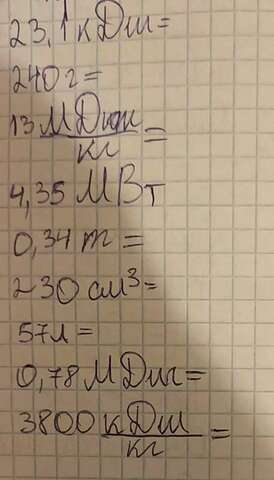 23,1 кДж=
240 г=
13 МДж/кг=
4,35 МВт
0,34 т=
230 см³=
57л=
0,78 МДж=
3800 кДж/кг=